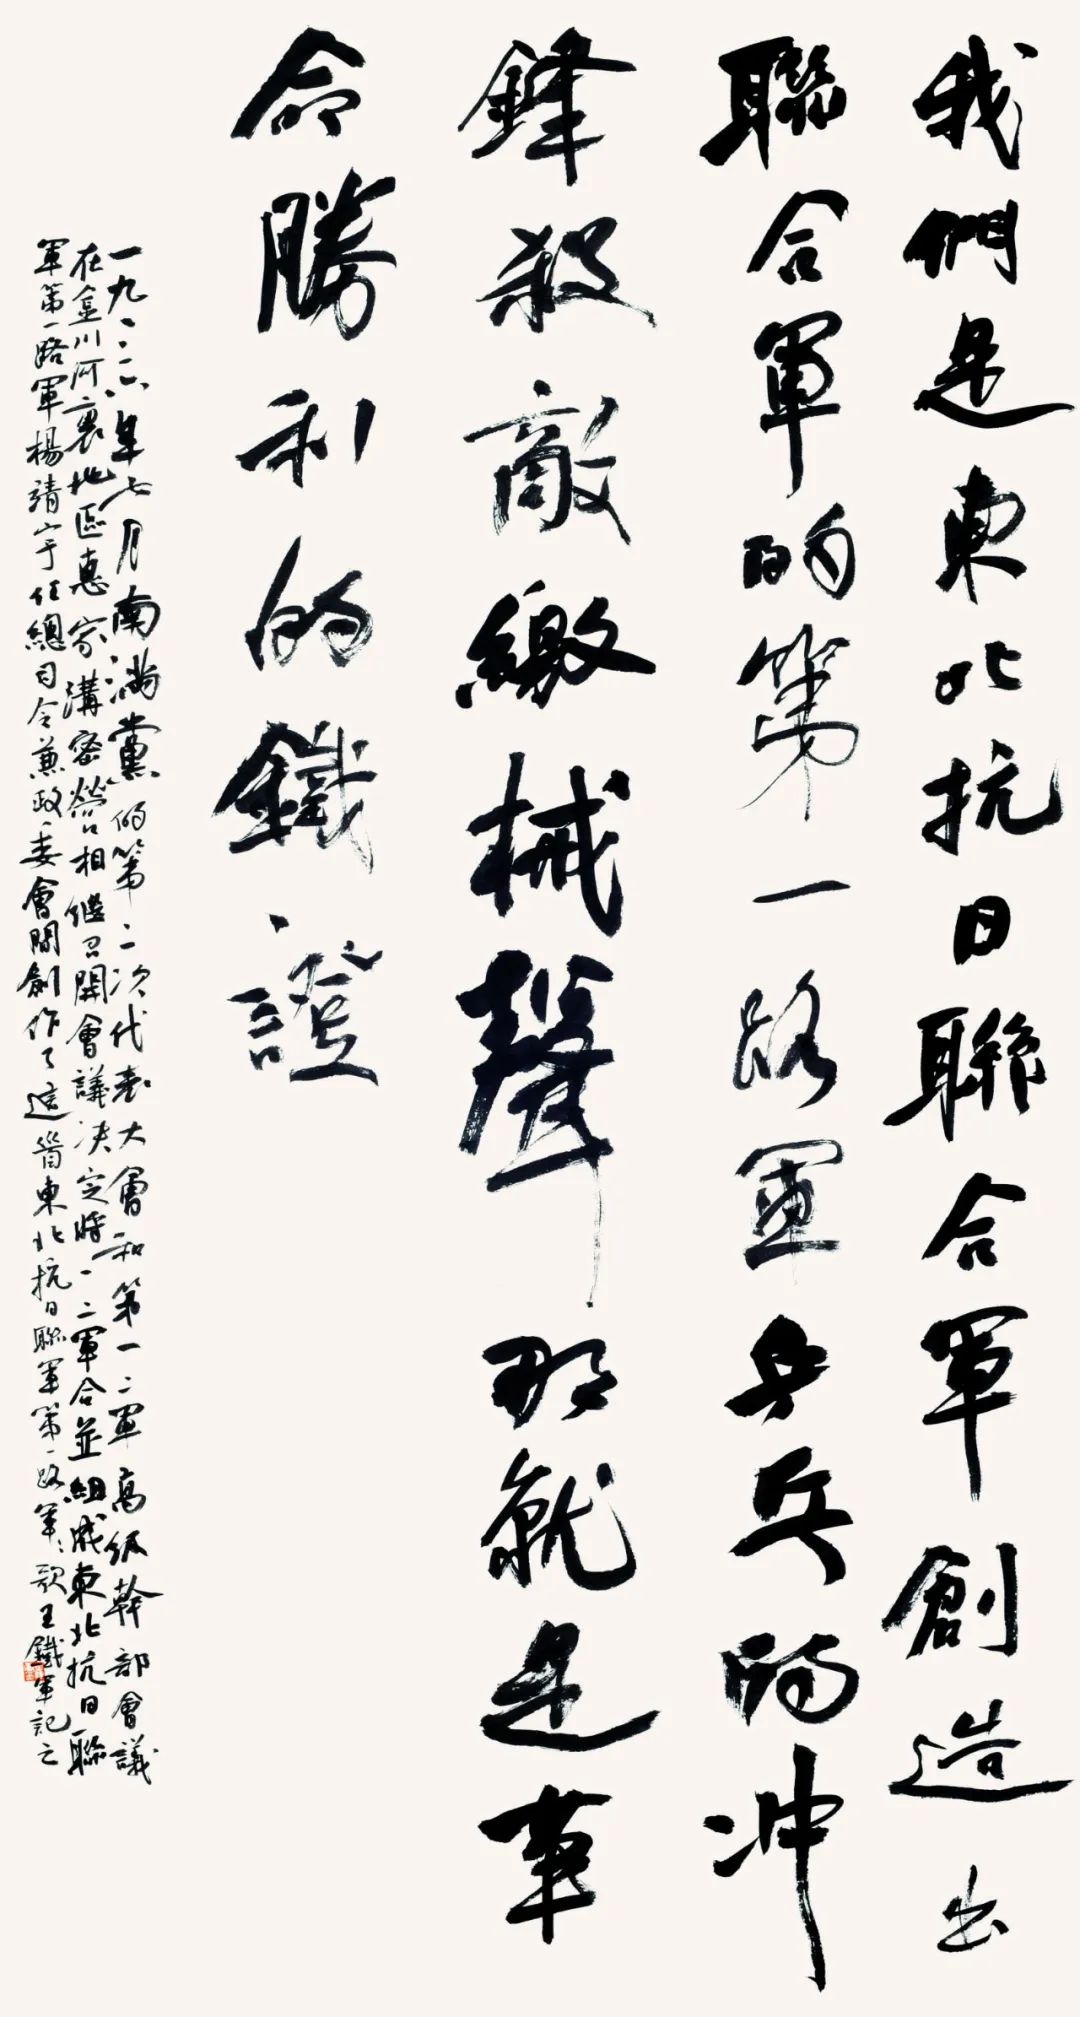 我們是東北抗日聯合軍創造出
聯合軍的第一路軍乒乓的冲
鋒殺敵繳械聲那就是革
命勝利的鐵證
一九三六年七月南滿黨的第二次代表大會和第一二軍高級幹部會議
在金川河裏地區惠家溝密營相繼召開會議決定將一二軍合並組成東北抗日聯
軍第一路軍楊靖宇任總司令兼政委會間創作了這首東北抗日聯軍第一路軍歌王鐵軍記之